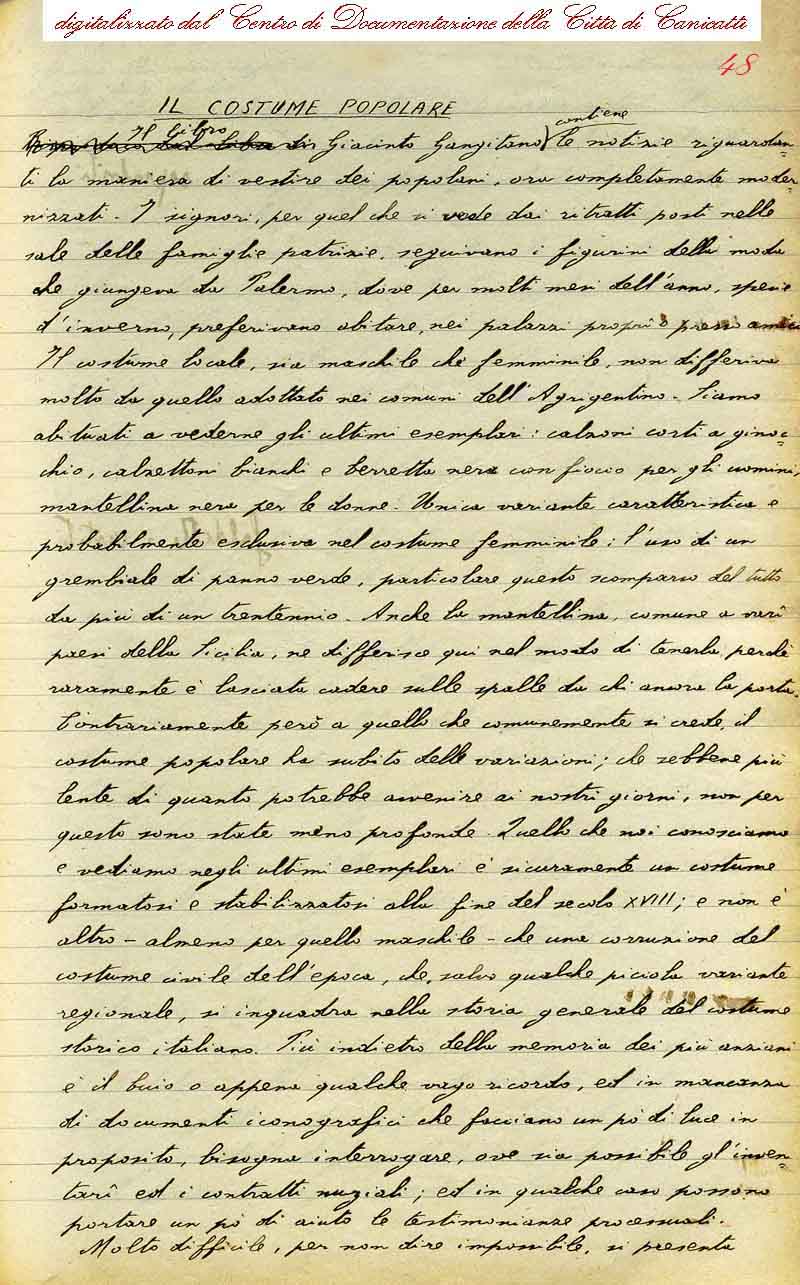 digitalizzato dal Centro di Documentazione della Città di Canicattì
48
IL COSTUME POPOLARE
Il libro di Giacinto Gangitano contiene le notizie riguardan-
ti la maniera di vestire dei popolani, ora completamente moder-
nizzati. I signori, per quel che si vede dai ritratti posti nelle
sale delle famiglie patrizie, seguivano i figurini della moda
che giungeva da Palermo, dove per molti mesi dell'anno, specie
d'inverno, preferivano abitare, nei palazzi proprî o presso amici
Il costume locale, sia maschile che femminile, non differiva
molto da quello adottato nei comuni dell'Agrigentino. Siamo
abituati a vederne gli ultimi esemplari: calzoni corti a ginoc=
chio, calzettoni bianchi e berretta nera con fiocco per gli uomini,
mantellina nera per le donne. Unica variante caratteristica e
probabilmente esclusiva nel costume femminile: l'uso di un
grembiale di panno verde, particolare questo scomparso del tutto
da più di un trentennio. Anche la mantellina, comune a varî
paesi della Sicilia, ne differisce qui nel modo di tenerla, perchè
raramente è lasciata cadere sulle spalle da chi ancora la porta.
Contrariamente però a quello che comunemente si crede, il
costume popolare ha subito delle variazioni; che sebbene più
lente di quanto potrebbe avvenire ai nostri giorni, non per
questo sono state meno profonde. Quello che noi conosciamo
e vediamo negli ultimi esemplari è sicuramente un costume
formatosi e stabilizzatosi alla fine del secolo XVIII; e non è
altro - almeno per quello maschile - che una corruzione del
costume civile dell'epoca, che, salvo qualche piccola variante
regionale, si inquadra nella storia generale del costume
storico italiano. Più indietro della memoria dei più anziani
è il buio o appena qualche vago ricordo, ed in mancanza
di documenti iconografici che facciano un pò di luce in
proposito, bisogna interrogare, ove sia possibile gl'inven-
tarî ed i contratti nuziali; ed in qualche caso possono
portare un pò di aiuto le testimonianze processuali.
Molto difficile, per non dire impossibile, si presenta